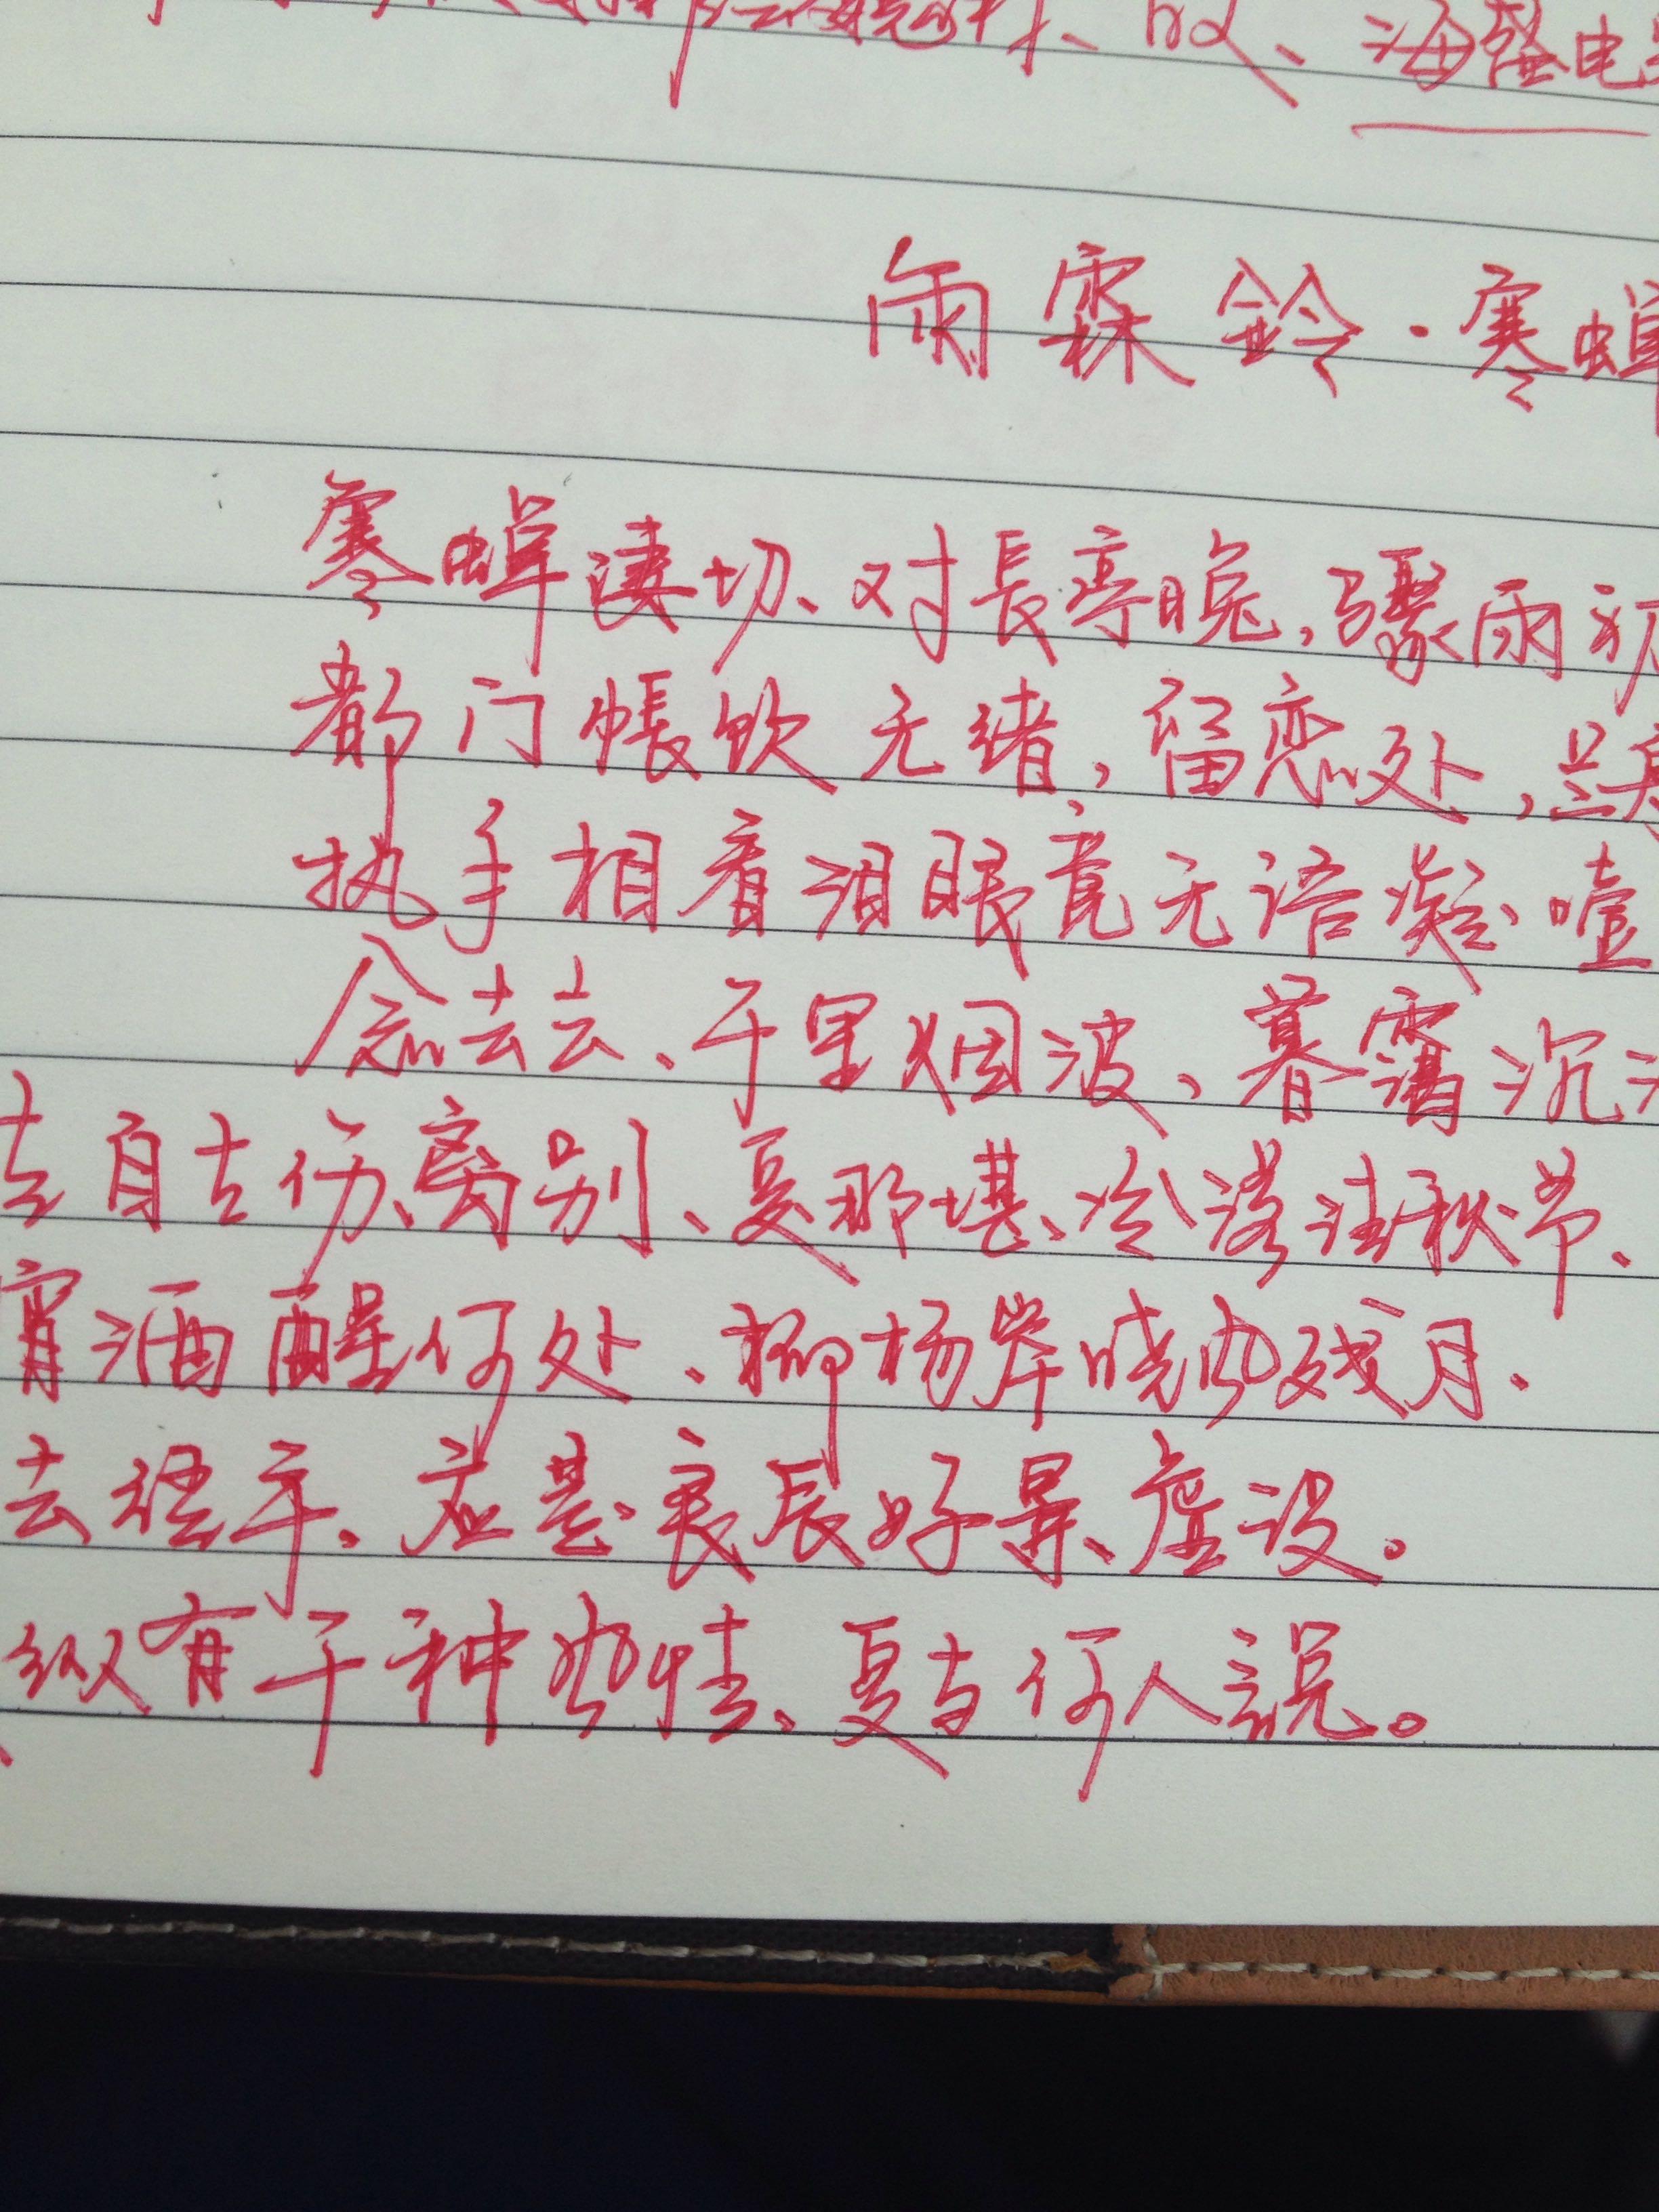 海螢电
雨霖鈴·寒蝉
寒蝉凄切、对長亭晚，骤雨初
都门帳饮无绪，留恋处，兰
执手相看泪眼竟无语凝、噎
念去去、千里烟波、暮霭沉沉
去自古伤离别、更那堪、冷落清秋节、
宵酒醒何处、柳杨岸晓风残月、
去经年、应是良辰好景虚设。
纵有千种风情、更与何人説。